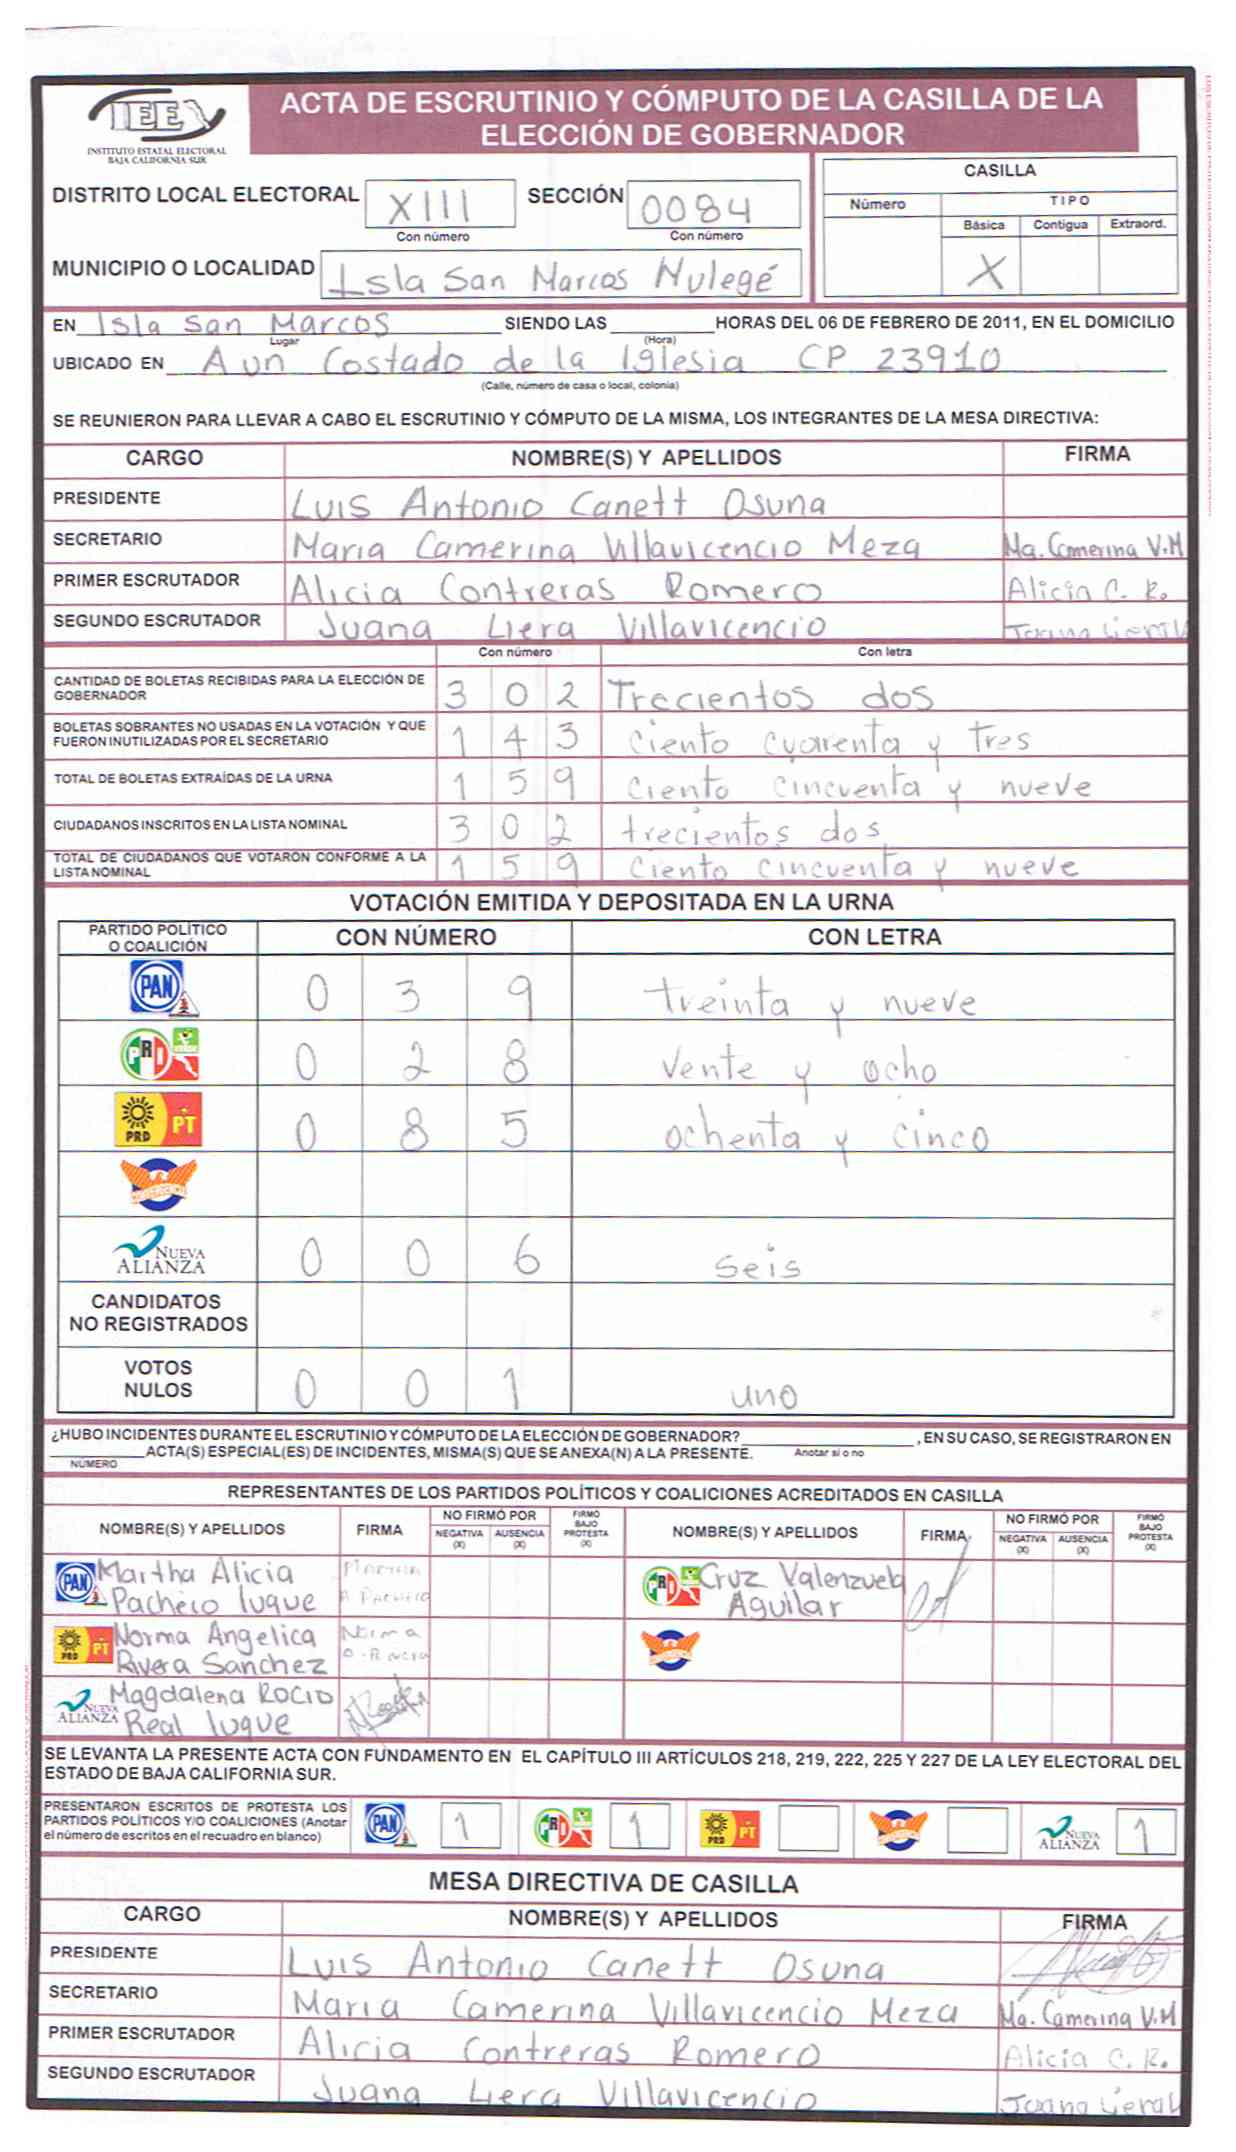 IEE
INSTITUTO ESTATAL ELECTORAL
BAJA CALIFORNIA SUR
ACTA DE ESCRUTINIO Y CÓMPUTO DE LA CASILLA DE LA
ELECCIÓN DE GOBERNADOR
DISTRITO LOCAL ELECTORAL XIII SECCIÓN 0084
Con número Con número
MUNICIPIO O LOCALIDAD Isla San Marcos Mulegé
CASILLA
Número TIPO
Básica Contigua Extraord.
X
EN Isla San Marcos SIENDO LAS HORAS DEL 06 DE FEBRERO DE 2011, EN EL DOMICILIO
Lugar (Hora)
UBICADO EN A un Costado de la Iglesia CP 23910
(Calle, número de casa o local, colonia)
SE REUNIERON PARA LLEVAR A CABO EL ESCRUTINIO Y CÓMPUTO DE LA MISMA, LOS INTEGRANTES DE LA MESA DIRECTIVA:
CARGO NOMBRE(S) Y APELLIDOS FIRMA
PRESIDENTE Luis Antonio Canett Osuna
SECRETARIO Maria Camerina Villavicencio Meza Ma. Camerina V.M
PRIMER ESCRUTADOR Alicia Contreras Romero Alicia C. R.
SEGUNDO ESCRUTADOR Juana Liera Villavicencio Juana Liera V
Con número Con letra
CANTIDAD DE BOLETAS RECIBIDAS PARA LA ELECCIÓN DE
GOBERNADOR 3 0 2 Trecientos dos
BOLETAS SOBRANTES NO USADAS EN LA VOTACIÓN Y QUE
FUERON INUTILIZADAS POR EL SECRETARIO 1 4 3 ciento cuarenta y tres
TOTAL DE BOLETAS EXTRAÍDAS DE LA URNA 1 5 9 ciento cincuenta y nueve
CIUDADANOS INSCRITOS EN LA LISTA NOMINAL 3 0 2 trecientos dos
TOTAL DE CIUDADANOS QUE VOTARON CONFORME A LA
LISTA NOMINAL 1 5 9 ciento cincuenta y nueve
VOTACIÓN EMITIDA Y DEPOSITADA EN LA URNA
PARTIDO POLÍTICO
O COALICIÓN CON NÚMERO CON LETRA
PAN 0 3 9 treinta y nueve
PRI 0 2 8 vente y ocho
PRD PT 0 8 5 ochenta y cinco
NUEVA
ALIANZA 0 0 6 seis
CANDIDATOS
NO REGISTRADOS
VOTOS
NULOS 0 0 1 uno
¿HUBO INCIDENTES DURANTE EL ESCRUTINIO Y CÓMPUTO DE LA ELECCIÓN DE GOBERNADOR? , EN SU CASO, SE REGISTRARON EN
ACTA(S) ESPECIAL(ES) DE INCIDENTES, MISMA(S) QUE SE ANEXA(N) A LA PRESENTE. Anotar si o no
NÚMERO
REPRESENTANTES DE LOS PARTIDOS POLÍTICOS Y COALICIONES ACREDITADOS EN CASILLA
NOMBRE(S) Y APELLIDOS FIRMA NO FIRMÓ POR FIRMÓ BAJO PROTESTA (X) NOMBRE(S) Y APELLIDOS FIRMA NO FIRMÓ POR FIRMÓ BAJO PROTESTA (X)
NEGATIVA (X) AUSENCIA (X) NEGATIVA (X) AUSENCIA (X)
PAN Martha Alicia Martha PRI Cruz Valenzuela
Pacheco luque A Pacheco Aguilar
PRD PT Norma Angelica Norma
Rivera Sanchez
NUEVA ALIANZA Magdalena Rocio
Real luque
SE LEVANTA LA PRESENTE ACTA CON FUNDAMENTO EN EL CAPÍTULO III ARTÍCULOS 218, 219, 222, 225 Y 227 DE LA LEY ELECTORAL DEL
ESTADO DE BAJA CALIFORNIA SUR.
PRESENTARON ESCRITOS DE PROTESTA LOS
PARTIDOS POLÍTICOS Y/O COALICIONES (Anotar
el número de escritos en el recuadro en blanco) PAN 1 PRI 1 PRD PT NUEVA ALIANZA 1
MESA DIRECTIVA DE CASILLA
CARGO NOMBRE(S) Y APELLIDOS FIRMA
PRESIDENTE Luis Antonio Canett Osuna
SECRETARIO Maria Camerina Villavicencio Meza Ma. Camerina V.M
PRIMER ESCRUTADOR Alicia Contreras Romero Alicia C. R.
SEGUNDO ESCRUTADOR Juana Liera Villavicencio Juana Liera V